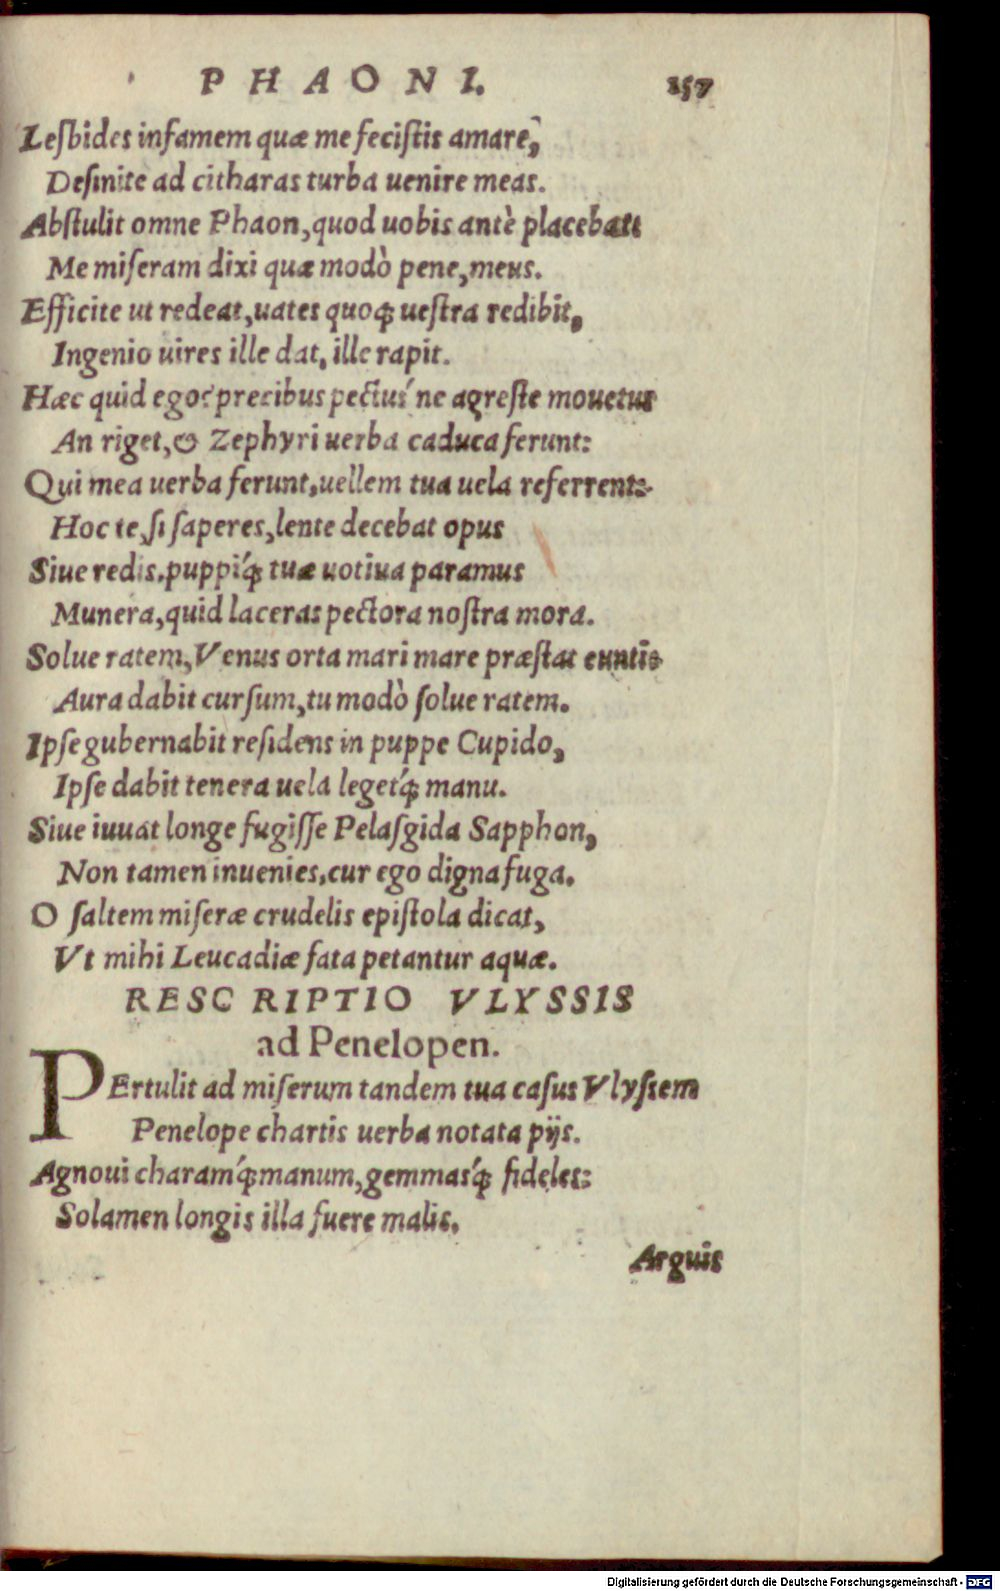 PHAONI. 157
Lesbides infamem quæ me fecistis amare,
Desinite ad citharas turba uenire meas.
Abstulit omne Phaon, quod uobis antè placebat:
Me miseram dixi quæ modò pene, meus.
Efficite ut redeat, uates quoq; uestra redibit,
Ingenio uires ille dat, ille rapit.
Hæc quid ego? precibus pectus' ne agreste mouetur
An riget, & Zephyri uerba caduca ferunt:
Qui mea uerba ferunt, uellem tua uela referrent:
Hoc te, si saperes, lente decebat opus
Siue redis, puppiq́; tuæ uotiua paramus
Munera, quid laceras pectora nostra mora.
Solue ratem, Venus orta mari mare præstat euntis
Aura dabit cursum, tu modò solue ratem.
Ipse gubernabit residens in puppe Cupido,
Ipse dabit tenera uela legetq́; manu.
Siue iuuat longe fugisse Pelasgida Sapphon,
Non tamen inuenies, cur ego digna fuga.
O saltem miseræ crudelis epistola dicat,
Vt mihi Leucadiæ fata petantur aquæ.
RESCRIPTIO VLYSSIS
ad Penelopen.
PErtulit ad miserum tandem tua casus Vlyssem
Penelope chartis uerba notata pijs.
Agnoui charamq́; manum, gemmasq́; fideles:
Solamen longis illa fuere malis.
Arguis
Digitalisierung gefördert durch die Deutsche Forschungsgemeinschaft - DFG